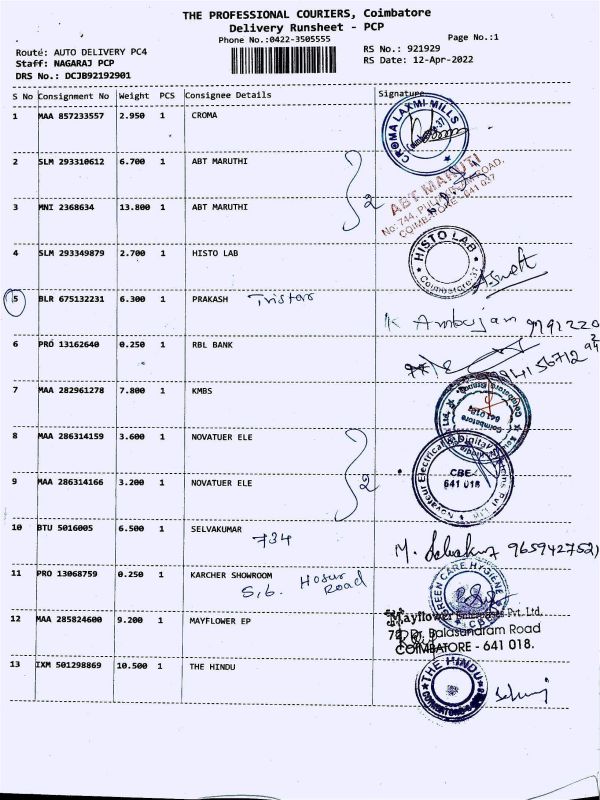 THE PROFESSIONAL COURIERS, Coimbatore
Delivery Runsheet - PCP
Phone No.:0422-3505555
Page No.:1
Route: AUTO DELIVERY PC4
RS No.: 921929
Staff: NAGARAJ PCP
RS Date: 12-Apr-2022
DRS No.: DCJB92192901
S No Consignment No Weight PCS Consignee Details Signature
1 MAA 857233557 2.950 1 CROMA
CROMA LAXMI MILLS
Coimbatore-37
2 SLM 293310612 6.700 1 ABT MARUTHI
2
ABT MARUTI
No: 744, ROAD,
COIMBATORE - 641 037
3 MNI 2368634 13.800 1 ABT MARUTHI
4 SLM 293349879 2.700 1 HISTO LAB
HISTO LAB
Coimbatore-37
5 BLR 675132231 6.300 1 PRAKASH Tristar
K Ambujam
6 PRO 13162640 0.250 1 RBL BANK
7 MAA 282961278 7.800 1 KMBS
Coimbatore
8 MAA 286314159 3.600 1 NOVATUER ELE
2
Novateur Electrical & Digital Systems Pvt Ltd
CBE-
641 018
9 MAA 286314166 3.200 1 NOVATUER ELE
10 BTU 5016005 6.500 1 SELVAKUMAR
734
M. Selvakumar
11 PRO 13068759 0.250 1 KARCHER SHOWROOM
S,b. Hosur Road
GREEN CARE HYGIENE
CBE
12 MAA 285824600 9.200 1 MAYFLOWER EP
Mayflower Enterprises Pvt. Ltd.
Dr. Balasundram Road
COIMBATORE - 641 018.
13 IXM 501298869 10.500 1 THE HINDU
THE HINDU